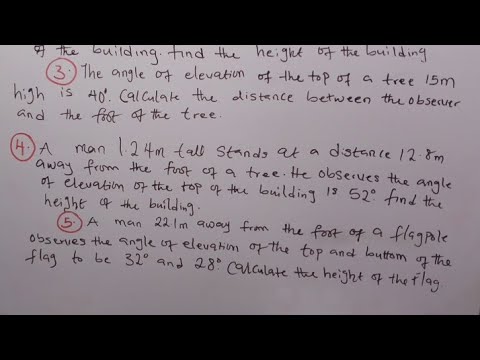 of the building. find the height of the building
3. The angle of elevation of the top of a tree 15m
high is 40°. Calculate the distance between the observer
and the foot of the tree.
4. A man 1.24m tall stands at a distance 12.8m
away from the foot of a tree. He observes the angle
of elevation of the top of the building is 52°. find the
height of the building.
5. A man 221m away from the foot of a flagpole
observes the angle of elevation of the top and buttom of the
flag to be 32° and 28°. Calculate the height of the flag